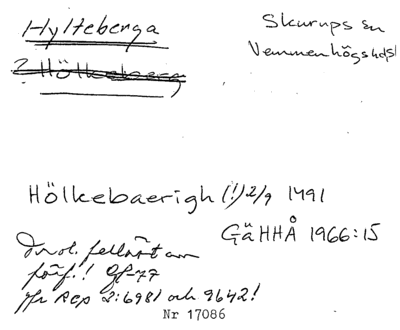 Hylteberga
Skurups sn
? Hölkeberg
Vemmenhögs hd
Hölkebaerigh (!) 2/9 1491
GäHHÅ 1966:15
Trol. felläst av
förf.!! GF-77
jfr Rep 2:6981 och 9642!
Nr 17086